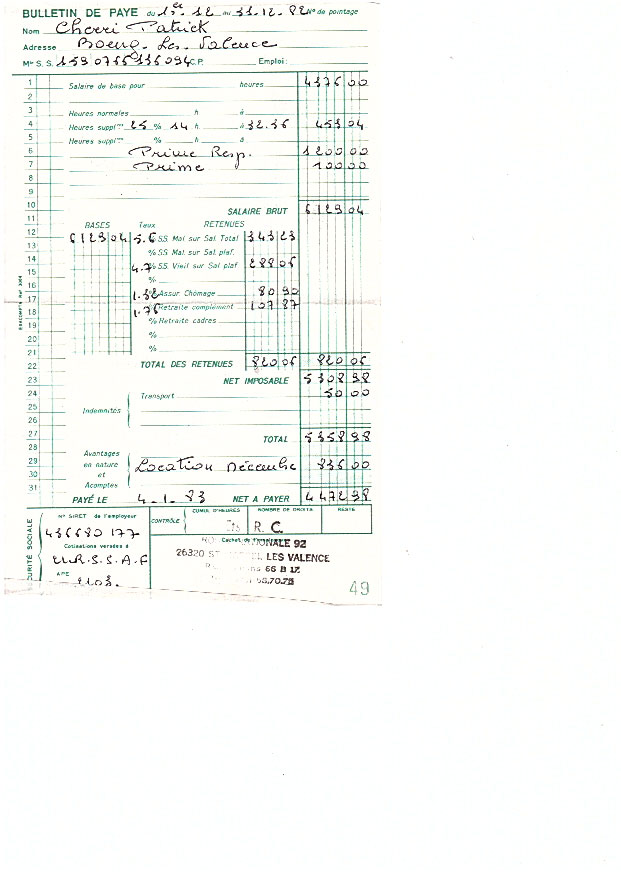 BULLETIN DE PAYE du 1er. 12 au 31.12.82 N° de pointage
Nom Cherri Patrick
Adresse Bourg-Les-Valence
N° S.S. C.P. Emploi:
1 Salaire de base pour heures 4376 00
2
3 Heures normales h à
4 Heures supplres 25 % 14 h. à 32.36 453 04
5 Heures supplres % h. à
6 Prime Resp. 1200 00
7 Prime 100 00
8
9
10 SALAIRE BRUT 6129 04
11 BASES Taux RETENUES
12 6129 04 5.6 SS. Mal. sur Sal. Total 343 23
13 % SS. Mal. sur Sal. plaf.
14 4.7 % SS. Vieil sur Sal. plaf 288 06
15 %
16 1.32 % Assur. Chômage 80 90
17 1.76 Retraite complément 107 87
18 % Retraite cadres
19 %
20 %
21
22 TOTAL DES RETENUES 820 06 820 06
23 NET IMPOSABLE 5308 98
24 Transport 50 00
25 Indemnités
26
27 TOTAL 5358 98
28 Avantages
29 en nature Location Décembre 886 00
30 et
31 Acomptes
PAYÉ LE 4.1.83 NET A PAYER 4472 98
SÉCURITÉ SOCIALE
N° SIRET de l'employeur
436680 177
Cotisations versées à
U.R.S.S.A.F
APE
2103.
CONTRÔLE
CUMUL D'HEURES NOMBRE DE DROITS RESTE
Ets R. C.
Cachet de
NATIONALE 92
26320 ST LES VALENCE
66 B 17
70.78
49